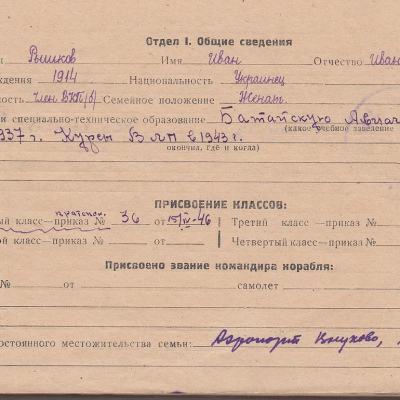 Отдел I. Общие сведения
Рышков Имя Иван Отчество Иван
ждения 1914 Национальность Украинец
ность Член ВКП(б) Семейное положение Женат.
й специально-техническое образование Батайскую Авиа
(какое учебное заведение
937 г. Курсы ВЛП в 1943 г.
окончил, где и когда)
ПРИСВОЕНИЕ КЛАССОВ:
ый класс—приказ № 36 от 15/IV-46 Третий класс—приказ №
ой класс—приказ № от Четвертый класс—приказ №
Присвоено звание командира корабля:
№ от самолет
остоянного местожительства семьи: Аэропорт Внуково,